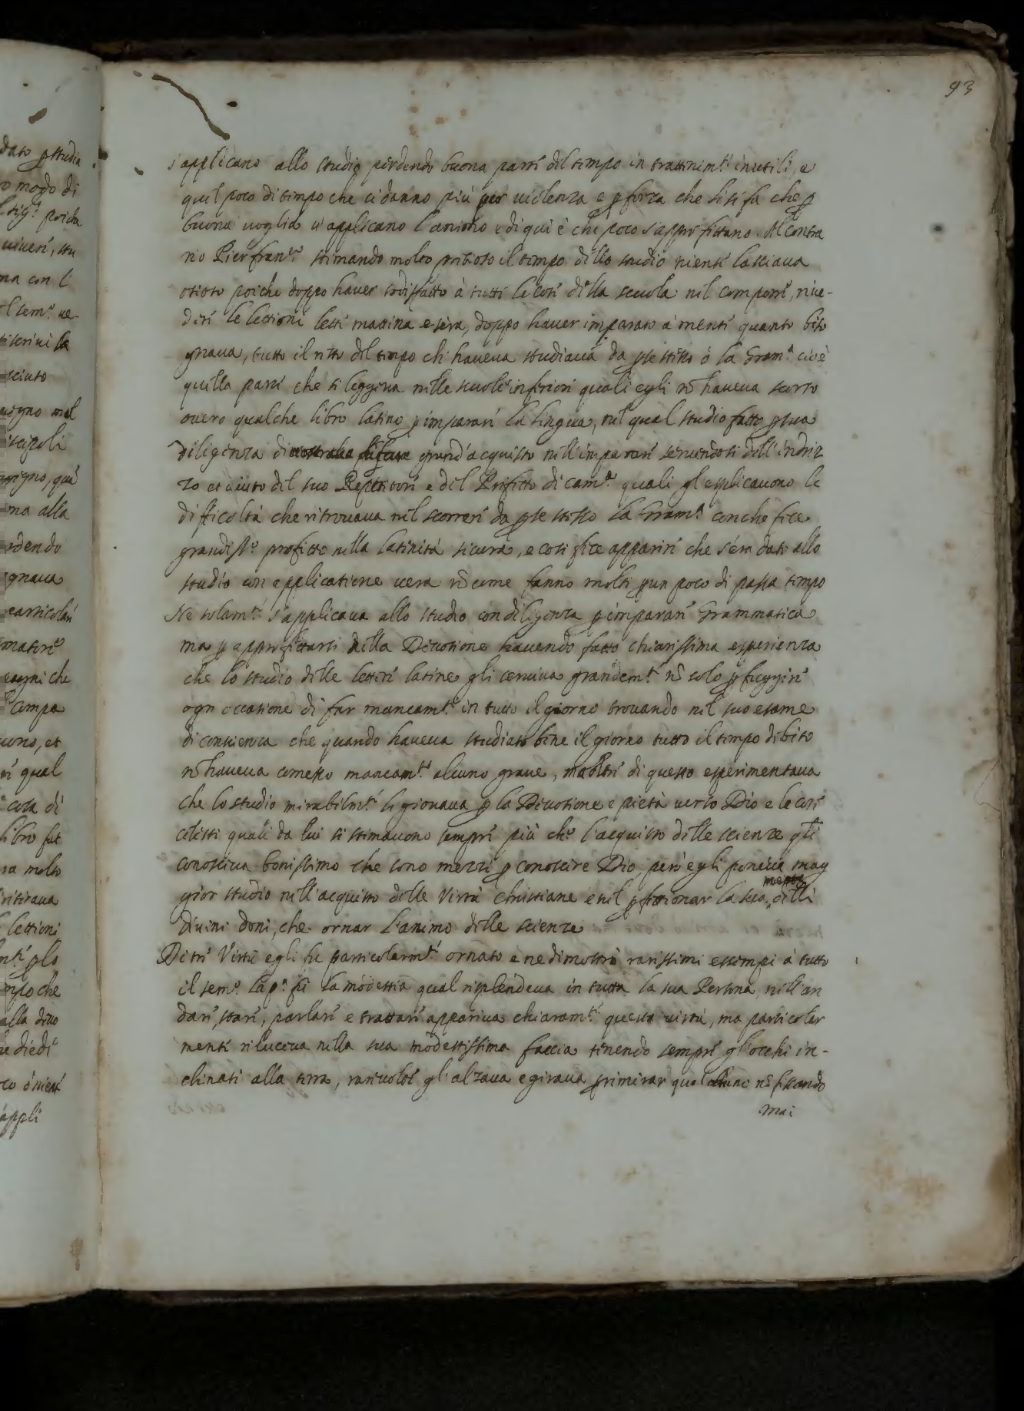 93
s'applicano allo studio perdendo buona parte del tempo in trattnim.ti inutili, e
quel poco di tempo che ci danno più per violenza e p forza che se si fà che p
buona voglia v'applicano l'animo e di qui è che poco s'approfittano. Al contra
rio Pierfran.co stimando molto pretioso il tempo dello studio niente lasciava
otioso poiche doppo haver sodisfatto à tutte le cose della scuola nel comporre, rive-
dere le lettioni lette matina e sera, doppo haver imparato a mente quanto biso
gnava, tutto il resto del tempo ch'haveva studiava da p se stesso ò la Gram.ca cioè
quella parte che si leggeva nelle scuole inferiori quali egli nõ haveva scorso
overo qualche libro latino p imparare la lingua, nel qual studio fatto p sua
diligenza grand'acquisto nell'imparare servendosi dell'indriz
zo et aiuto del suo Repetitore e del Prefetto di cam.ra quali gl'esplicavono le
difficoltà che ritrovava nel scorrere da p se stesso la Gram.ca con che fece
grandiss.o profitto nella latinità sicura, e così fece apparire che s'era dato allo
studio con applicatione vera nõ come fanno molti p un poco di passa tempo
Ne solam.te s'applicava allo studio con diligenza p imparare Grammatica
ma p approfittarsi nella Divotione havendo fatto chiarissima esperienza
che lo studio delle lettere latine gli serviva grandem.te nõ solo p fuggire
ogn'occasione di far mancam.to in tutto il giorno trovando nel suo esame
di conscienza che quando haveva studiato bene il giorno tutto il tempo debito
nõ haveva comesso mancam.to alcuno grave, ma oltre di questo esperimentava
che lo studio mirabilm.te li giovava p la Divotione e pietà verso Dio e le cose
celesti quali da lui si stimavono sempre più che l'acquisto delle scienze q.li
conosceva benissimo che sono mezzi p conoscere Dio, però egli poneva mag
gior studio nell'acquisto delle Virtù christiane e nel p fettionar la sua mente delli
divini doni, che ornar l'animo delle scienze
Di tre Virtù egli fu particolarm.te ornato e ne dimostrò rarissimi essempi à tutto
il sem.o la p.a fù la modestia qual risplendeva in tutta la sua Persona, nell'an
dare, stare, parlare e trattare appariva chiaram.te questa virtù, ma particolar
mente riluceva nella sua modestissima faccia tenendo sempre gl'occhi in-
clinati alla terra, rarevolte gl'alzava e girava p rimirar qualchuno nõ fissando
mai